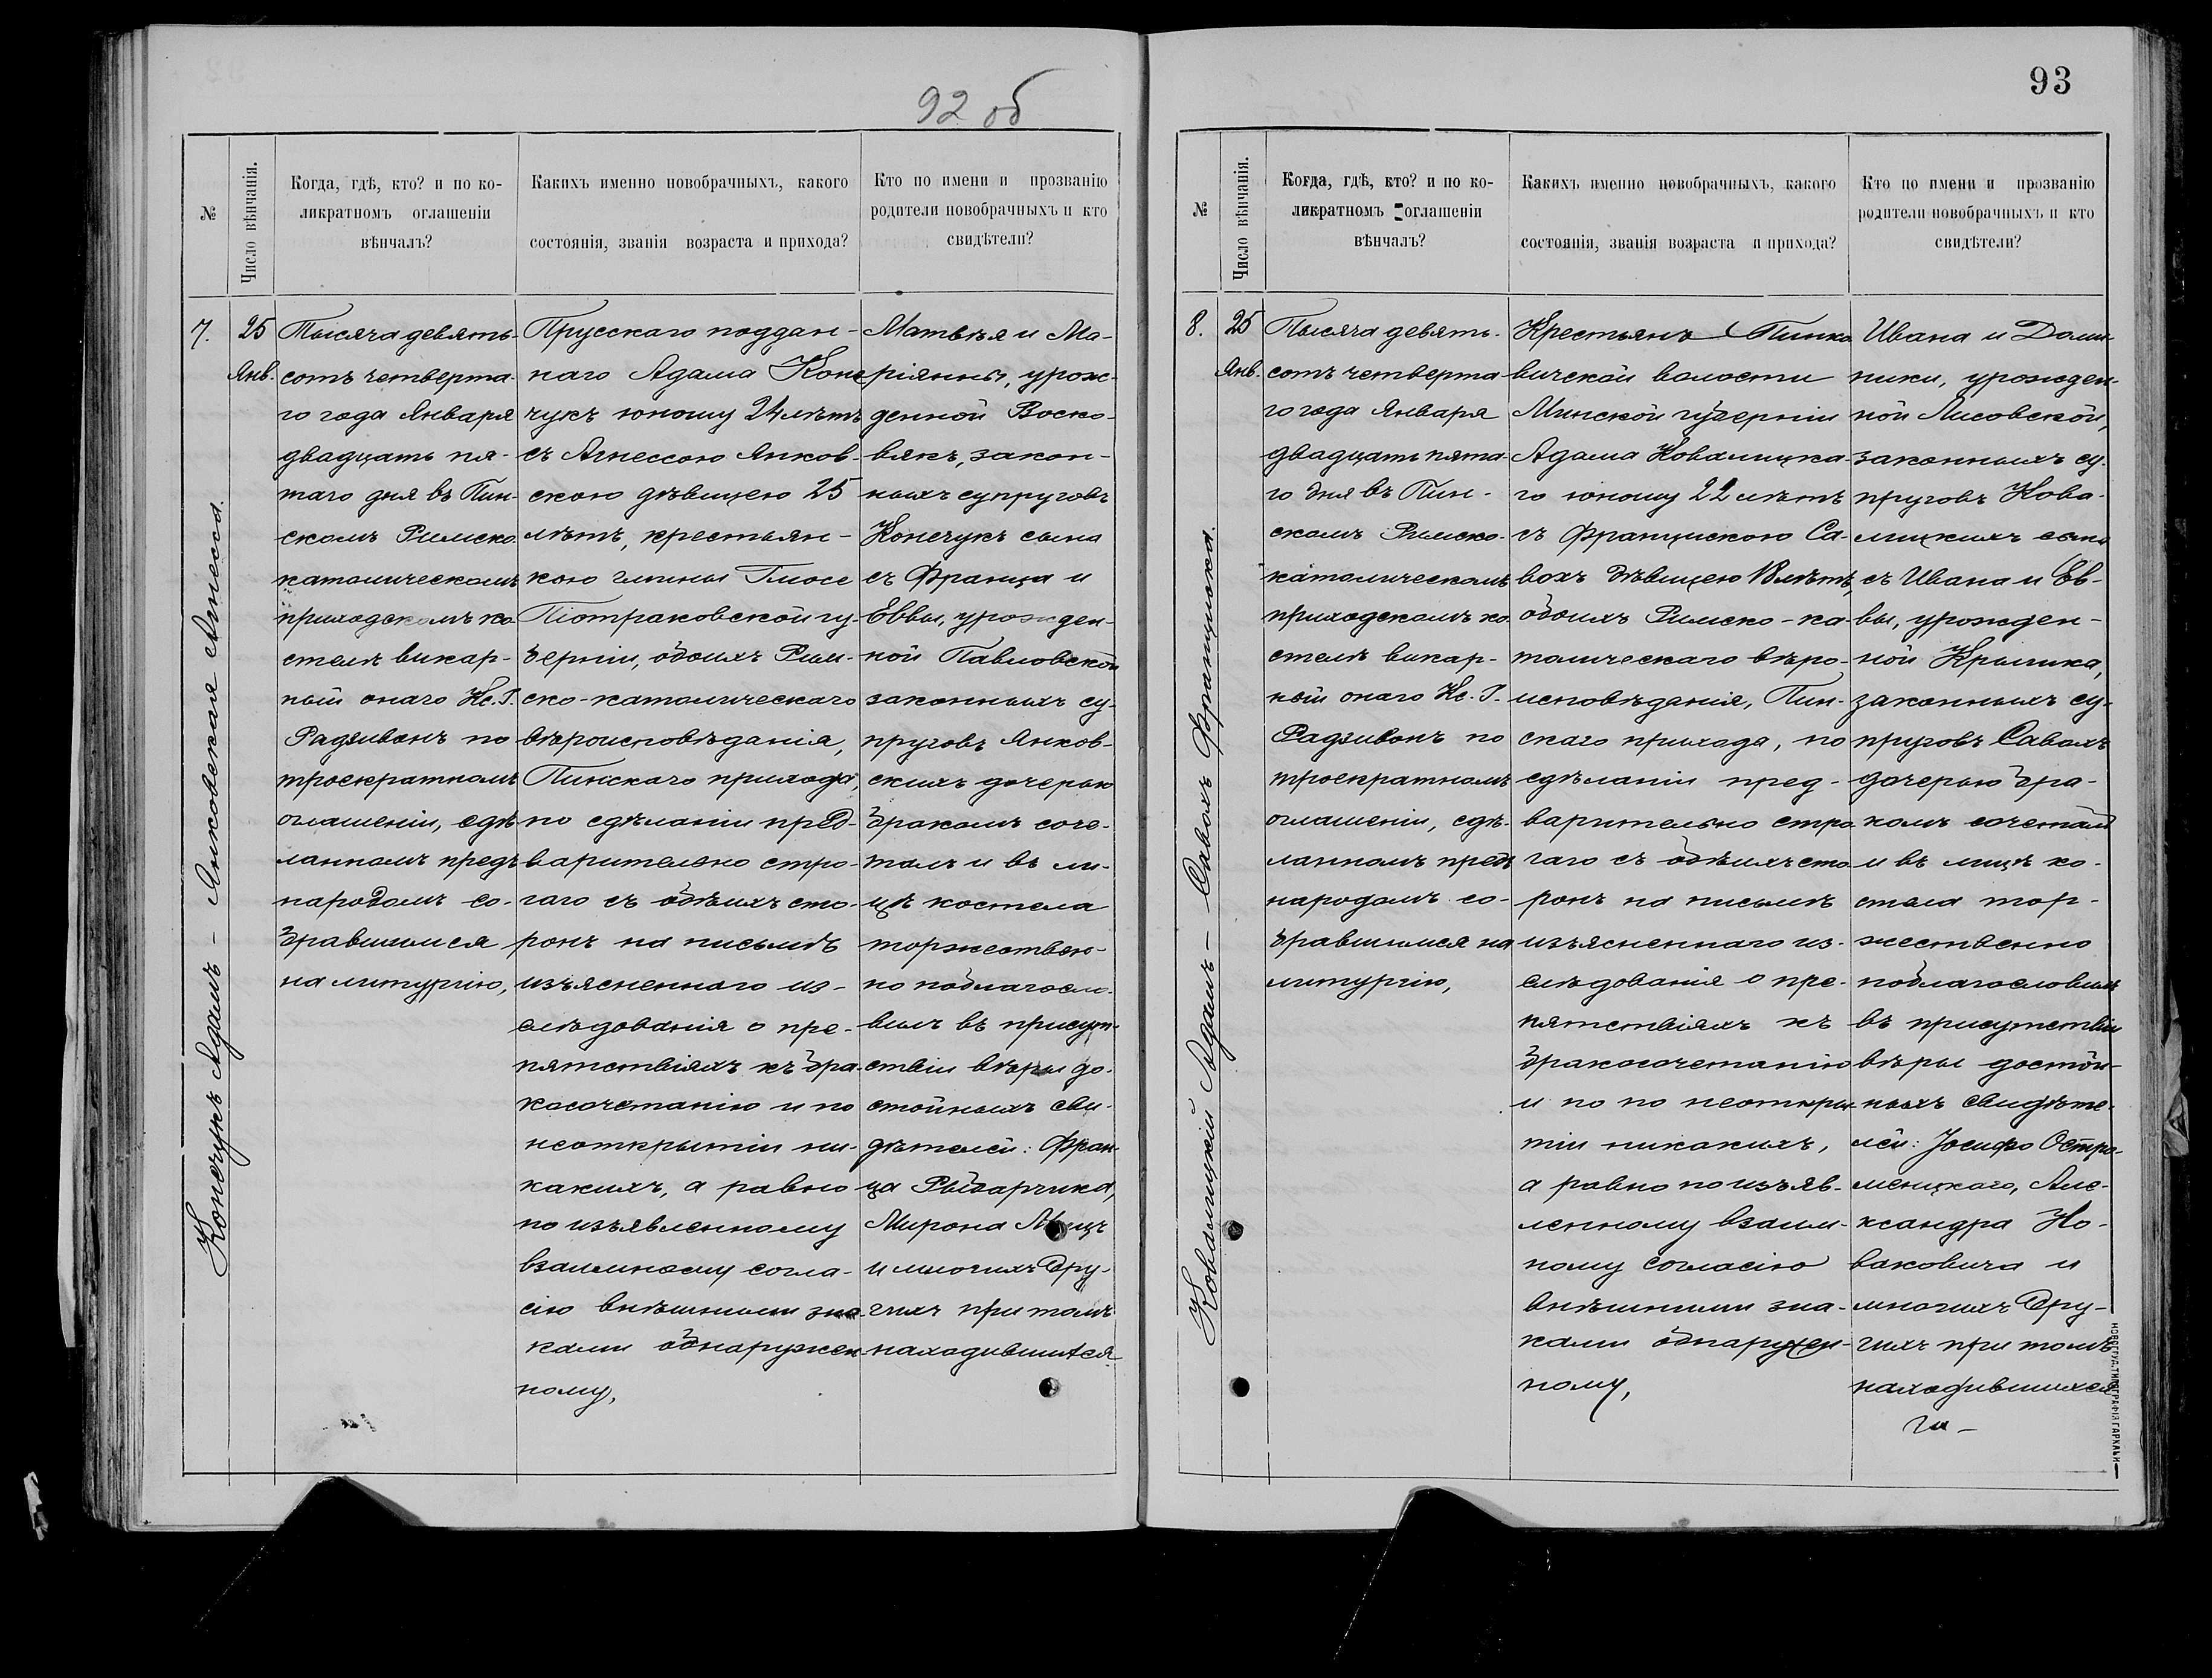 92 об
№
Число вѣнчанія.
Когда, гдѣ, кто? и по ко-
ликратномъ оглашеніи
вѣнчалъ?
Какихъ именно новобрачныхъ, какого
состоянія, званія возраста и прихода?
Кто по имени и прозванію
родители новобрачныхъ и кто
свидѣтели?
Конечукъ Адамъ – Янковская Агнесса.
7.
25
Янв.
Тысяча девять-
сотъ четверта-
го года Января
двадцать пя-
таго дня въ Пин-
скомъ Римско
католическомъ
приходскомъ ко
стелѣ викар-
ный онаго Кс. I.
Радзивонъ по
троекратномъ
оглашеніи, сдѣ-
ланномъ предъ
народомъ со-
бравшимся
на литургію,
Прусскаго поддан-
наго Адама Коне
чукъ юношу 24 лѣтъ
съ Агнессою Янков-
скою дѣвицею 25
лѣтъ, крестьян-
кою гмины Глосе
Піотраковской гу-
берніи, обоихъ Рим-
ско-католическаго
вѣроисповѣданія,
Пинскаго прихода,
по сдѣланіи пред-
варительно стро-
гаго съ обѣихъ сто-
ронъ на письмѣ
изъясненнаго из-
слѣдованія о пре-
пятствіяхъ къ бра-
косочетанію и по
неоткрытіи ни-
какихъ, а равно
по изъявленному
взаимному согла-
сію внѣшними зна-
ками обнаружен-
ному,
Матвѣя и Ма-
ріянны, урож-
денной Воско-
вякъ, закон-
ныхъ супруговъ
Конечукъ сына
съ Франца и
Еввы, урожден-
ной Павловской
законныхъ су-
пруговъ Янков-
скихъ дочерью
бракомъ соче-
талъ и въ ли-
цѣ костела
торжествен-
но поблагосло-
вилъ въ присут-
ствіи вѣры до-
стойныхъ сви-
дѣтелей: Фран-
ца Рыбарчика,
Мирона
и многихъ дру-
гихъ при томъ
находившихся
93
№
Число вѣнчанія.
Когда, гдѣ, кто? и по ко-
ликратномъ оглашеніи
вѣнчалъ?
Какихъ именно новобрачныхъ, какого
состоянія, званія возраста и прихода?
Кто по имени и прозванію
родители новобрачныхъ и кто
свидѣтели?
Ковалицкій Адамъ – Савохъ Франциска.
8.
25
Янв.
Тысяча девять-
сотъ четверта
го года Января
двадцать пята-
го дня въ Пин-
скомъ Римско-
католическомъ
приходскомъ ко
стелѣ викар-
ный онаго Кс. I.
Радзивонъ по
троекратномъ
оглашеніи, сдѣ-
ланномъ предъ
народомъ со-
бравшимся на
литургію,
Крестьянъ Пинко
вичской волости
Минской губерніи
Адама Ковалицка-
го юношу 22 лѣтъ
съ Францискою Са-
вохъ дѣвицею 18 лѣтъ,
обоихъ Римско-ка-
толическаго вѣро-
исповѣданія, Пин-
скаго прихода, по
сдѣланіи пред-
варительно стро
гаго съ обѣихъ сто
ронъ на письмѣ
изъясненнаго из-
слѣдованія о пре-
пятствіяхъ къ
бракосочетанію
и по по неоткры-
тіи никакихъ,
а равно по изъяв-
ленному взаим-
ному согласію
внѣшними зна-
ками обнаружен-
ному,
Ивана и Доми-
ники, урожден-
ной Лисовской,
законныхъ су-
пруговъ Кова-
лицкихъ сына
съ Ивана и Ев-
вы, урожден-
ной Крылика,
законныхъ су-
пруговъ Савохъ
дочерью бра-
комъ сочеталъ
и въ лицѣ ко-
стела тор-
жественно
поблагословилъ
въ присутствіи
вѣры достой-
ныхъ свидѣте-
лей: Іосифа Остро-
меницкаго, Але-
ксандра Но-
ваковича и
многихъ дру-
гихъ при томъ
находившихся
НОВОГРУД. ТИПОГРАФІЯ ГАРКАВИ